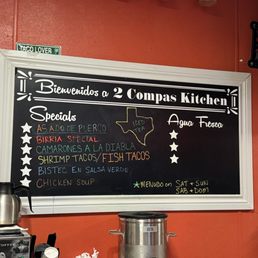 TACO LOVER
Bienvenidos a 2 Compas Kitchen
Specials
ASADO DE PUERCO
BIRRIA SPECIAL
CAMARONES A LA DIABLA
SHRIMP TACOS/FISH TACOS
BISTEC EN SALSA VERDE
CHICKEN SOUP
ICED
TEA
Agua Fresca
★MENUDO ON SAT & SUN
SAB & DOM